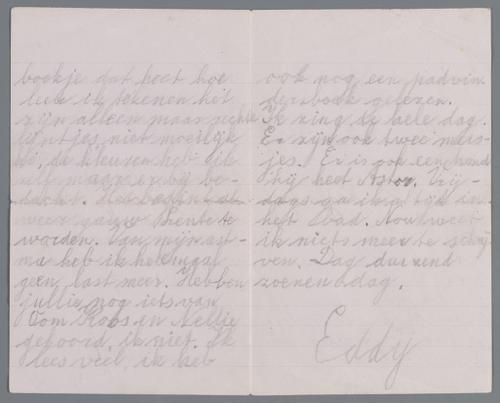 boekje dat heet hoe
leer ik tekenen het
zijn alleen maar rechte
lijntjes niet moeilijk
hé, de kleuren heb ik
uit maar er bij be-
dacht. Het begint al
weer gauw lente te
worden. Van mijn ast-
ma heb ik helemaal
geen last meer. Hebben
jullie nog iets van
Tom Koos en Nellie
gehoord, ik niet. Ik
lees veel, ik heb
ook nog een padvin
dersboek gelezen.
Ik zing de hele dag.
Er zijn ook twee meis-
jes. Er is ook een hond
hij heet Astor. Vrij-
dags ga ik altijd in
het bad. Nou weet
ik niets meer te schrij
ven. Dag duizend
zoenen dag.
Eddy